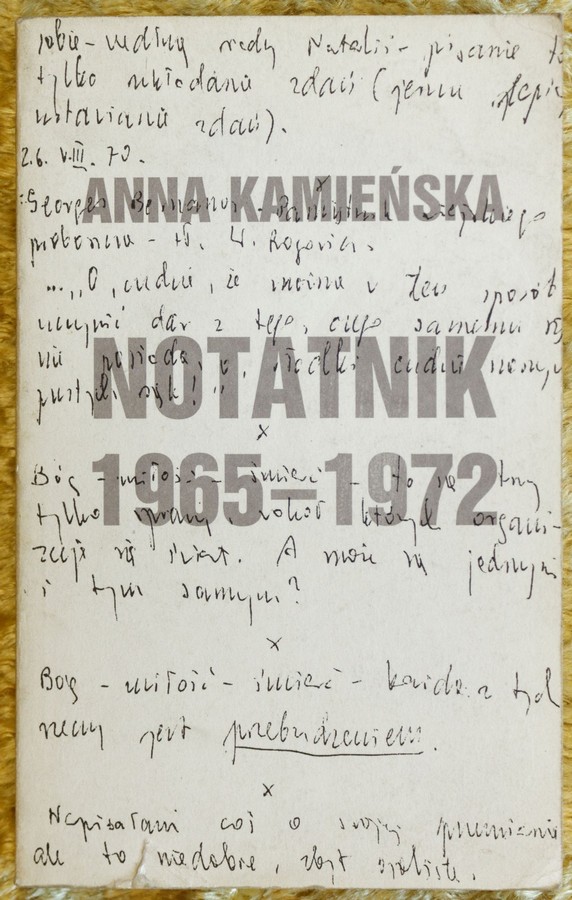 sobie – według rady Natalii – pisanie to
tylko układanie zdań (jemu lepiej
ustawianie zdań).
26. VIII. 70.
ANNA KAMIEŃSKA
Georges Bernanos – Pamiętnik wiejskiego
proboszcza – tł. W. Rogowicz.
"... „O, cudzie, że można w ten sposób
uczynić dar z tego, czego samemu się
nie posiada, o, słodki cudzie naszych
pustych rąk!"
NOTATNIK
x
1965–1972
Bóg – miłość – śmierć – to są trzy
tylko sprawy, wokół których organi-
zuje się świat. A może są jednym
i tym samym?
x
Bóg – miłość – śmierć – każda z tych
rzeczy jest przebudzeniem.
x
Napisałam coś o swojej przemianie
ale to niedobre, zbyt osobiste.